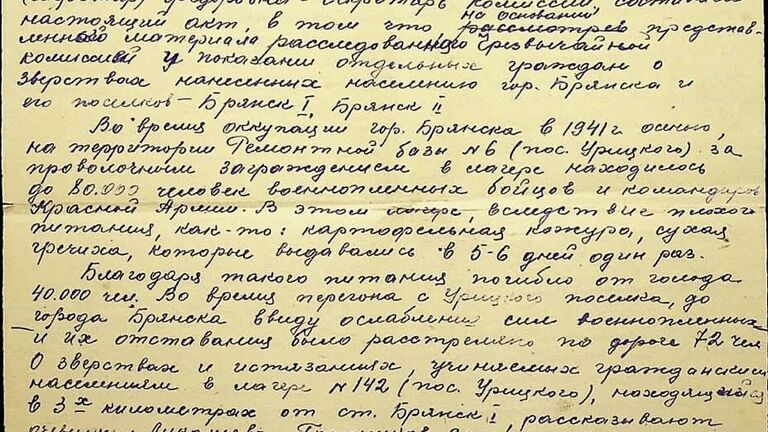 секретарь комиссии, составили
настоящий акт, в том что рассмотрев на основании представ-
ленного материала расследованного Чрезвычайной
комиссией и показании отдельных граждан о
зверствах нанесенных населению гор. Брянска и
его поселков – Брянск I, Брянск II
Во время оккупации гор. Брянска в 1941 г осенью,
на территории Ремонтной базы №6 (пос. Урицкого) за
проволочным заграждением в лагере находилось
до 80.000 человек военнопленных бойцов и командиров
Красной Армии. В этом лагере, вследствие плохого
питания, как-то: картофельная кожура, сухая
гречиха, которые выдавались в 5-6 дней один раз.
Благодаря такого питания погибло от голода
40.000 чел. Во время перегона с Урицкого поселка, до
города Брянска ввиду ослабления сил военнопленных
– и их отставания было расстреляно по дороге 72 чел
О зверствах и истязаниях, учиняемых гражданским
населениям в лагере №142 (пос. Урицкого), находящийся
в 3х километрах от ст. Брянск I, рассказывают